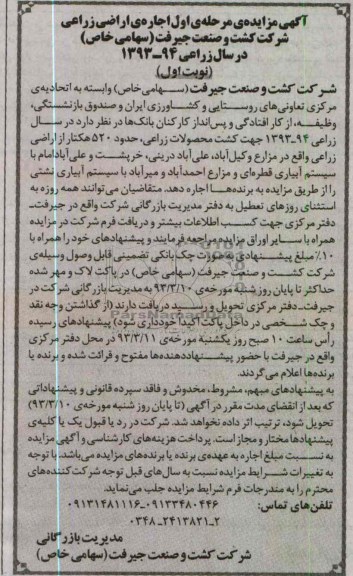 آگهی مزایده‌ی مرحله‌ی اول اجاره‌ی اراضی زراعی
شرکت کشت و صنعت جیرفت (سهامی خاص)
در سال زراعی ۹۴-۱۳۹۳
(نوبت اول)
شرکت کشت و صنعت جیرفت (سهامی خاص) وابسته به اتحادیه‌ی
مرکزی تعاونی‌های روستایی و کشاورزی ایران و صندوق بازنشستگی،
وظیفه، از کار افتادگی و پس‌انداز کارکنان بانک‌ها در نظر دارد در سال
زراعی ۹۴-۱۳۹۳ جهت کشت محصولات زراعی، حدود ۵۲۰ هکتار از اراضی
زراعی واقع در مزارع وکیل‌آباد، علی‌آباد درینی، خرپشت و علی‌آباد امام با
سیستم آبیاری قطره‌ای و مزارع احمدآباد و میرآباد با سیستم آبیاری نشتی
را از طریق مزایده به برنده‌ها اجاره دهد. متقاضیان می‌توانند همه روزه به
استثنای روزهای تعطیل به دفتر مدیریت بازرگانی شرکت واقع در جیرفت-
دفتر مرکزی جهت کسب اطلاعات بیشتر و دریافت فرم شرکت در مزایده
همراه با سایر اوراق مزایده مراجعه فرمایند و پیشنهادهای خود را همراه با
۱۰٪ مبلغ پیشنهادی به صورت چک بانکی تضمینی قابل وصول وسیله‌ی
شرکت کشت و صنعت جیرفت (سهامی خاص) در پاکت لاک و مهر شده
حداکثر تا پایان روز شنبه مورخه‌ی ۹۳/۳/۱۰ به مدیریت بازرگانی شرکت در
جیرفت-دفتر مرکزی تحویل و رسید دریافت دارند (از گذاشتن وجه نقد
و چک شخصی در داخل پاکت اکیداً خودداری شود) پیشنهادهای رسیده
رأس ساعت ۱۰ صبح روز یکشنبه مورخه‌ی ۹۳/۳/۱۱ در محل دفتر مرکزی
واقع در جیرفت با حضور پیشنهاددهنده‌ها مفتوح و قرائت شده و برنده یا
برنده‌ها اعلام می‌گردند.
به پیشنهادهای مبهم، مشروط، مخدوش و فاقد سپرده قانونی و پیشنهاداتی
که بعد از انقضای مدت مقرر در آگهی (تا پایان روز شنبه مورخه‌ی ۹۳/۳/۱۰)
تحویل شود، ترتیب اثر داده نخواهد شد. شرکت در رد یا قبول یک یا کلیه‌ی
پیشنهادها مختار و مجاز است. پرداخت هزینه‌های کارشناسی و آگهی مزایده
به نسبت مبلغ اجاره به عهده‌ی برنده یا برنده‌های مزایده می‌باشد. با توجه
به تغییرات شرایط مزایده نسبت به سال‌های قبل توجه شرکت‌کننده‌های
محترم را به مندرجات فرم شرایط مزایده جلب می‌نماید.
تلفن‌های تماس: ۰۹۱۳۳۴۸۰۴۴۶-۰۹۱۳۱۴۸۱۱۱۶
۰۳۴۸-۲۴۱۳۸۲۱-۲
مدیریت بازرگانی
شرکت کشت و صنعت جیرفت (سهامی خاص)